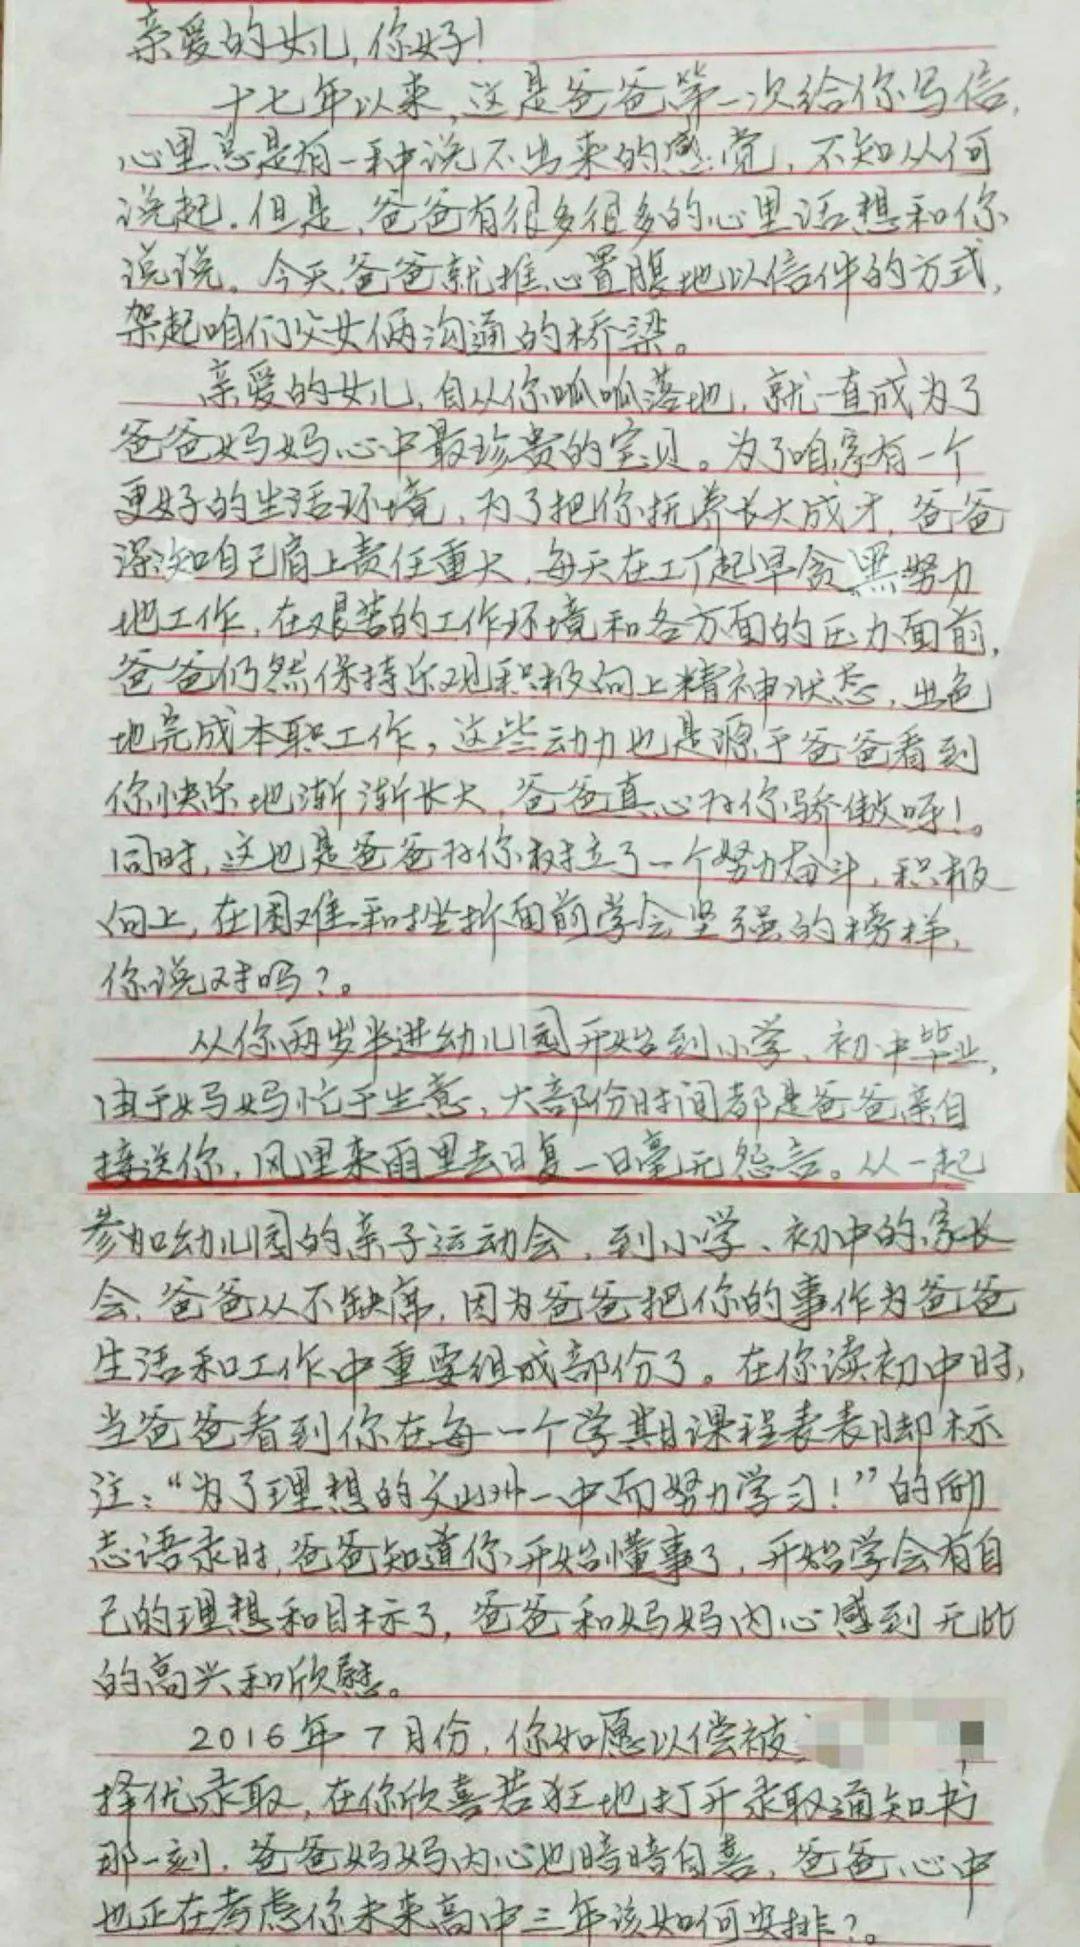 亲爱的女儿,你好!
十七年以来,这是爸爸第一次给你写信,
心里总是有一种说不出来的感觉,不知从何
说起.但是,爸爸有很多很多的心里话想和你
说说。今天,爸爸就推心置腹地以信件的方式,
架起咱们父女俩沟通的桥梁。
亲爱的女儿,自从你呱呱落地,就一直成为了
爸爸妈妈心中最珍贵的宝贝。为了咱家有一个
更好的生活环境,为了把你抚养长大成才,爸爸
深知自己肩上责任重大,每天在工厂起早贪黑努力
地工作,在艰苦的工作环境和各方面的压力面前,
爸爸仍然保持乐观积极向上精神状态,出色
地完成本职工作,这些动力也是源于爸爸看到
你快乐地渐渐长大,爸爸真心为你骄傲呀!。
同时,这也是爸爸为你树立了一个努力奋斗、积极
向上,在困难和挫折面前学会坚强的榜样,
你说对吗?。
从你两岁半进幼儿园开始到小学、初中毕业,
由于妈妈忙于生意,大部份时间都是爸爸亲自
接送你,风里来雨里去日复一日毫无怨言。从一起
参加幼儿园的亲子运动会,到小学、初中的家长
会,爸爸从不缺席,因为爸爸把你的事作为爸爸
生活和工作中重要组成部份了。在你读初中时,
当爸爸看到你在每一个学期课程表表脚标
注:“为了理想的文山州一中而努力学习!”的励
志语录时,爸爸知道你开始懂事了,开始学会有自
己的理想和目标了,爸爸和妈妈内心感到无比
的高兴和欣慰。
2016年7月份,你如愿以偿被
择优录取,在你欣喜若狂地打开录取通知书
那一刻,爸爸妈妈内心也暗暗自喜,爸爸心中
也正在考虑你未来高中三年该如何安排?。